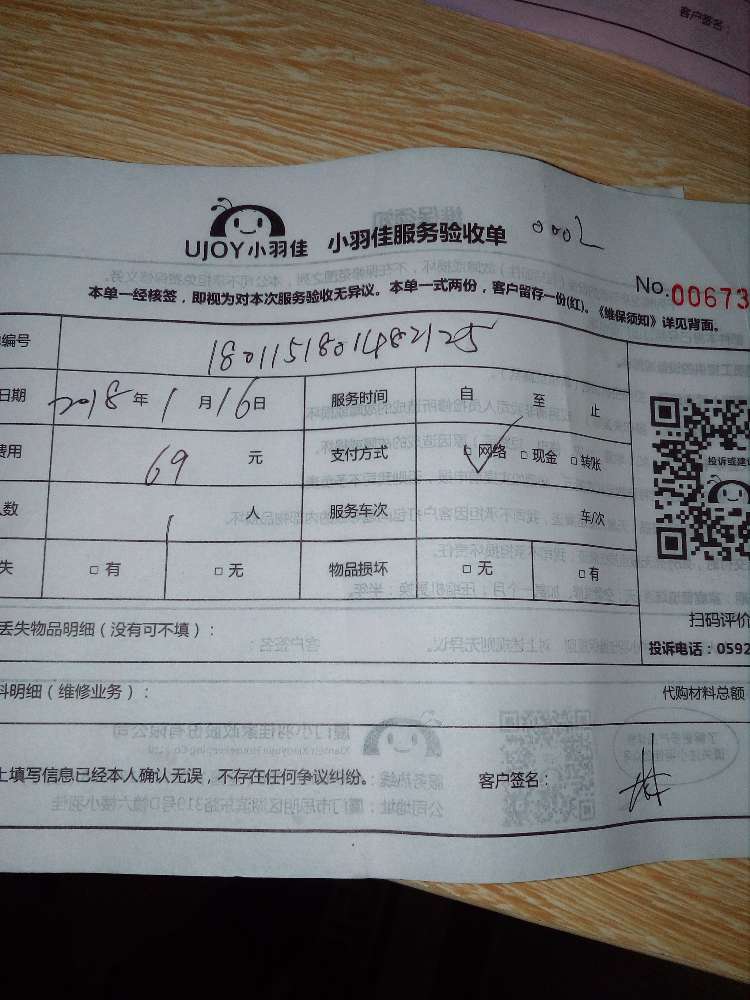 客户签名：
UJOY小羽佳 小羽佳服务验收单 0002
No.00673
本单一经核签，即视为对本次服务验收无异议。本单一式两份，客户留存一份(红)。《维保须知》详见背面。
编号 1801151801482125
日期 2018年1月16日 服务时间 自 至 止
费用 69 元 支付方式 □网络 □现金 □转账
人数 1 人 服务车次 车/次
失 □有 □无 物品损坏 □无 □有
投诉或建
扫码评价
丢失物品明细（没有可不填）：
投诉电话：0592
料明细（维修业务）： 代购材料总额
上填写信息已经本人确认无误，不存在任何争议纠纷。 客户签名：